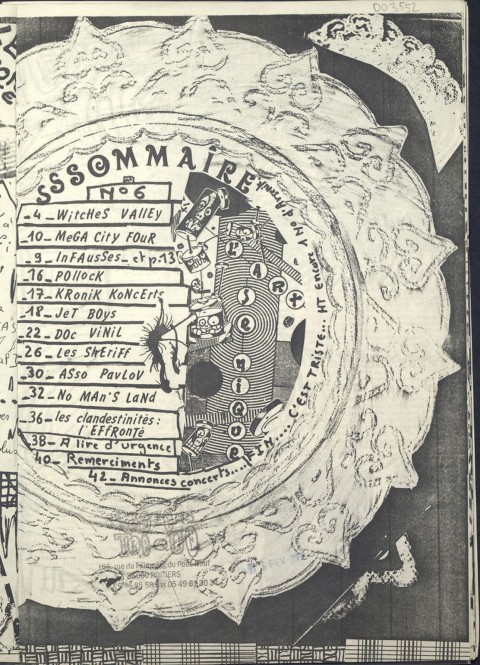 003552
SSSOMMAiRE
No6
_4_WitCHeS VAllEy
_10_MeGA City FOuR
_9_InFAusSes_et p.13
_16_POllocK
_17_KRoniK KoNcErts
_18_JeT BOys
_22_DOc ViNiL
_26_Les SHERiFF
_30_ASso PavLoV
_32_No MAn'S LanD
_36_les clandestinités:
l'EFFRonTé
_38_A lire d'urgence
40_Remerciments
42_Annonces concerts...FIN....C'EST TRISTE... HT Encore
L'ART
SeniQUe
86000 POITIERS